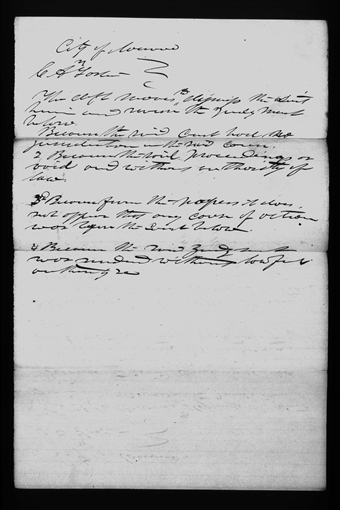 City of
vs
C A
The deft moves to dismiss the suit
herein and reverse the judgment
below
Because the said Court had no
jurisdiction in the said cause.
2 Because the said proceedings are
void and without authority of
law.
3d Because from the papers it does
not appear that any cause of action
was upon the suit below
4 Because the said judgment
was rendered without lawful